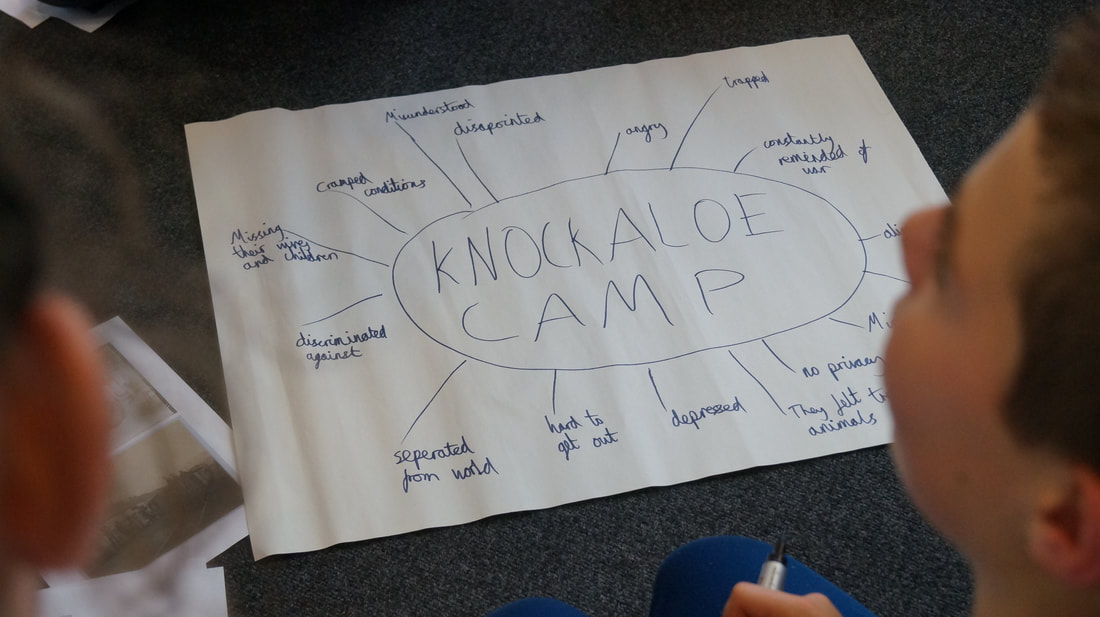 Misunderstood
disapointed
trapped
angry
constantly
remended of
war
Cramped
conditions
Missing
their wives
and children
KNOCKALOE
CAMP
discriminated
against
no privacy
They felt
animals
depressed
hard to
get out
seperated
from world